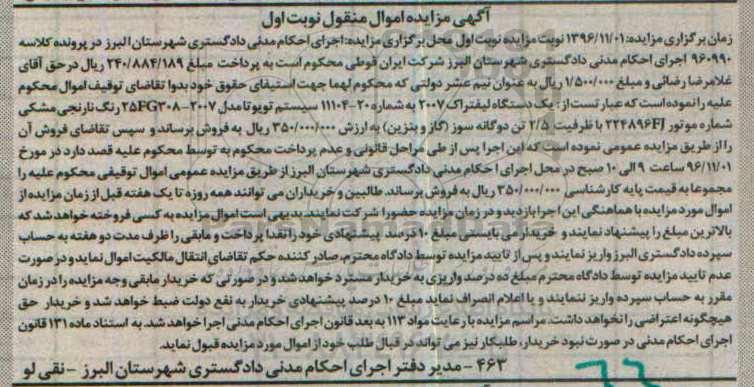 آگهی مزایده اموال منقول نوبت اول
زمان برگزاری مزایده: ۱۳۹۶/۱۱/۰۱ نوبت مزایده نوبت اول محل برگزاری مزایده: اجرای احکام مدنی دادگستری شهرستان البرز در پرونده کلاسه
۹۶۰۹۹۰ اجرای احکام مدنی دادگستری شهرستان البرز شرکت ایران قوطی محکوم است به پرداخت مبلغ ۲۴۰/۸۸۴/۱۸۹ ریال در حق آقای
غلامرضا رضائی و مبلغ ۱/۵۰۰/۰۰۰ ریال به عنوان نیم عشر دولتی که محکوم لهما جهت استیفای حقوق خود بدوا تقاضای توقیف اموال محکوم
علیه را نموده است که عبارتست از: یک دستگاه لیفتراک ۲۰۰۷ به شماره ۲۰-۱۱۱۰۴ سیستم تویوتا مدل ۲۰۰۷-۲۵FG۳۰۸ رنگ نارنجی مشکی
شماره موتور ۲۲۴۸۹۶FJ با ظرفیت ۲/۵ تن دوگانه سوز (گاز و بنزین) به ارزش ۳۵۰/۰۰۰/۰۰۰ ریال به فروش برساند و سپس تقاضای فروش آن
را از طریق مزایده عمومی نموده است که این اجرا پس از طی مراحل قانونی و عدم پرداخت محکوم به توسط محکوم علیه قصد دارد در مورخ
۹۶/۱۱/۰۱ ساعت ۹ الی ۱۰ صبح در محل اجرای احکام مدنی دادگستری شهرستان البرز از طریق مزایده عمومی اموال توقیفی محکوم علیه را
مجموعا به قیمت پایه کارشناسی ۳۵۰/۰۰۰/۰۰۰ ریال به فروش برساند. طالبین و خریداران می توانند همه روزه تا یک هفته قبل از زمان مزایده از
اموال مورد مزایده با هماهنگی این اجرا بازدید و در زمان مزایده حضورا شرکت نمایند. بدیهی است اموال مزایده به کسی فروخته خواهد شد که
بالاترین مبلغ را پیشنهاد نمایند و خریدار می بایستی مبلغ ۱۰ درصد پیشنهادی خود را نقدا پرداخت و مابقی را ظرف مدت دو هفته به حساب
سپرده دادگستری البرز واریز نمایند و پس از تایید مزایده توسط دادگاه محترم، صادر کننده حکم تقاضای انتقال مالکیت اموال نماید و در صورت
عدم تایید مزایده توسط دادگاه محترم مبلغ ده درصد واریزی به خریدار مسترد خواهد شد و در صورتی که خریدار مابقی وجه مزایده را در زمان
مقرر به حساب سپرده واریز ننمایند و یا اعلام انصراف نماید مبلغ ۱۰ درصد پیشنهادی خریدار به نفع دولت ضبط خواهد شد و خریدار حق
هیچگونه اعتراضی را نخواهد داشت. مراسم مزایده با رعایت مواد ۱۱۳ به بعد قانون اجرای احکام مدنی اجرا خواهد شد. به استناد ماده ۱۳۱ قانون
اجرای احکام مدنی در صورت نبود خریدار، طلبکار نیز می تواند در قبال طلب خود از اموال مورد مزایده قبول نماید.
۴۶۳ - مدیر دفتر اجرای احکام مدنی دادگستری شهرستان البرز - نقی لو